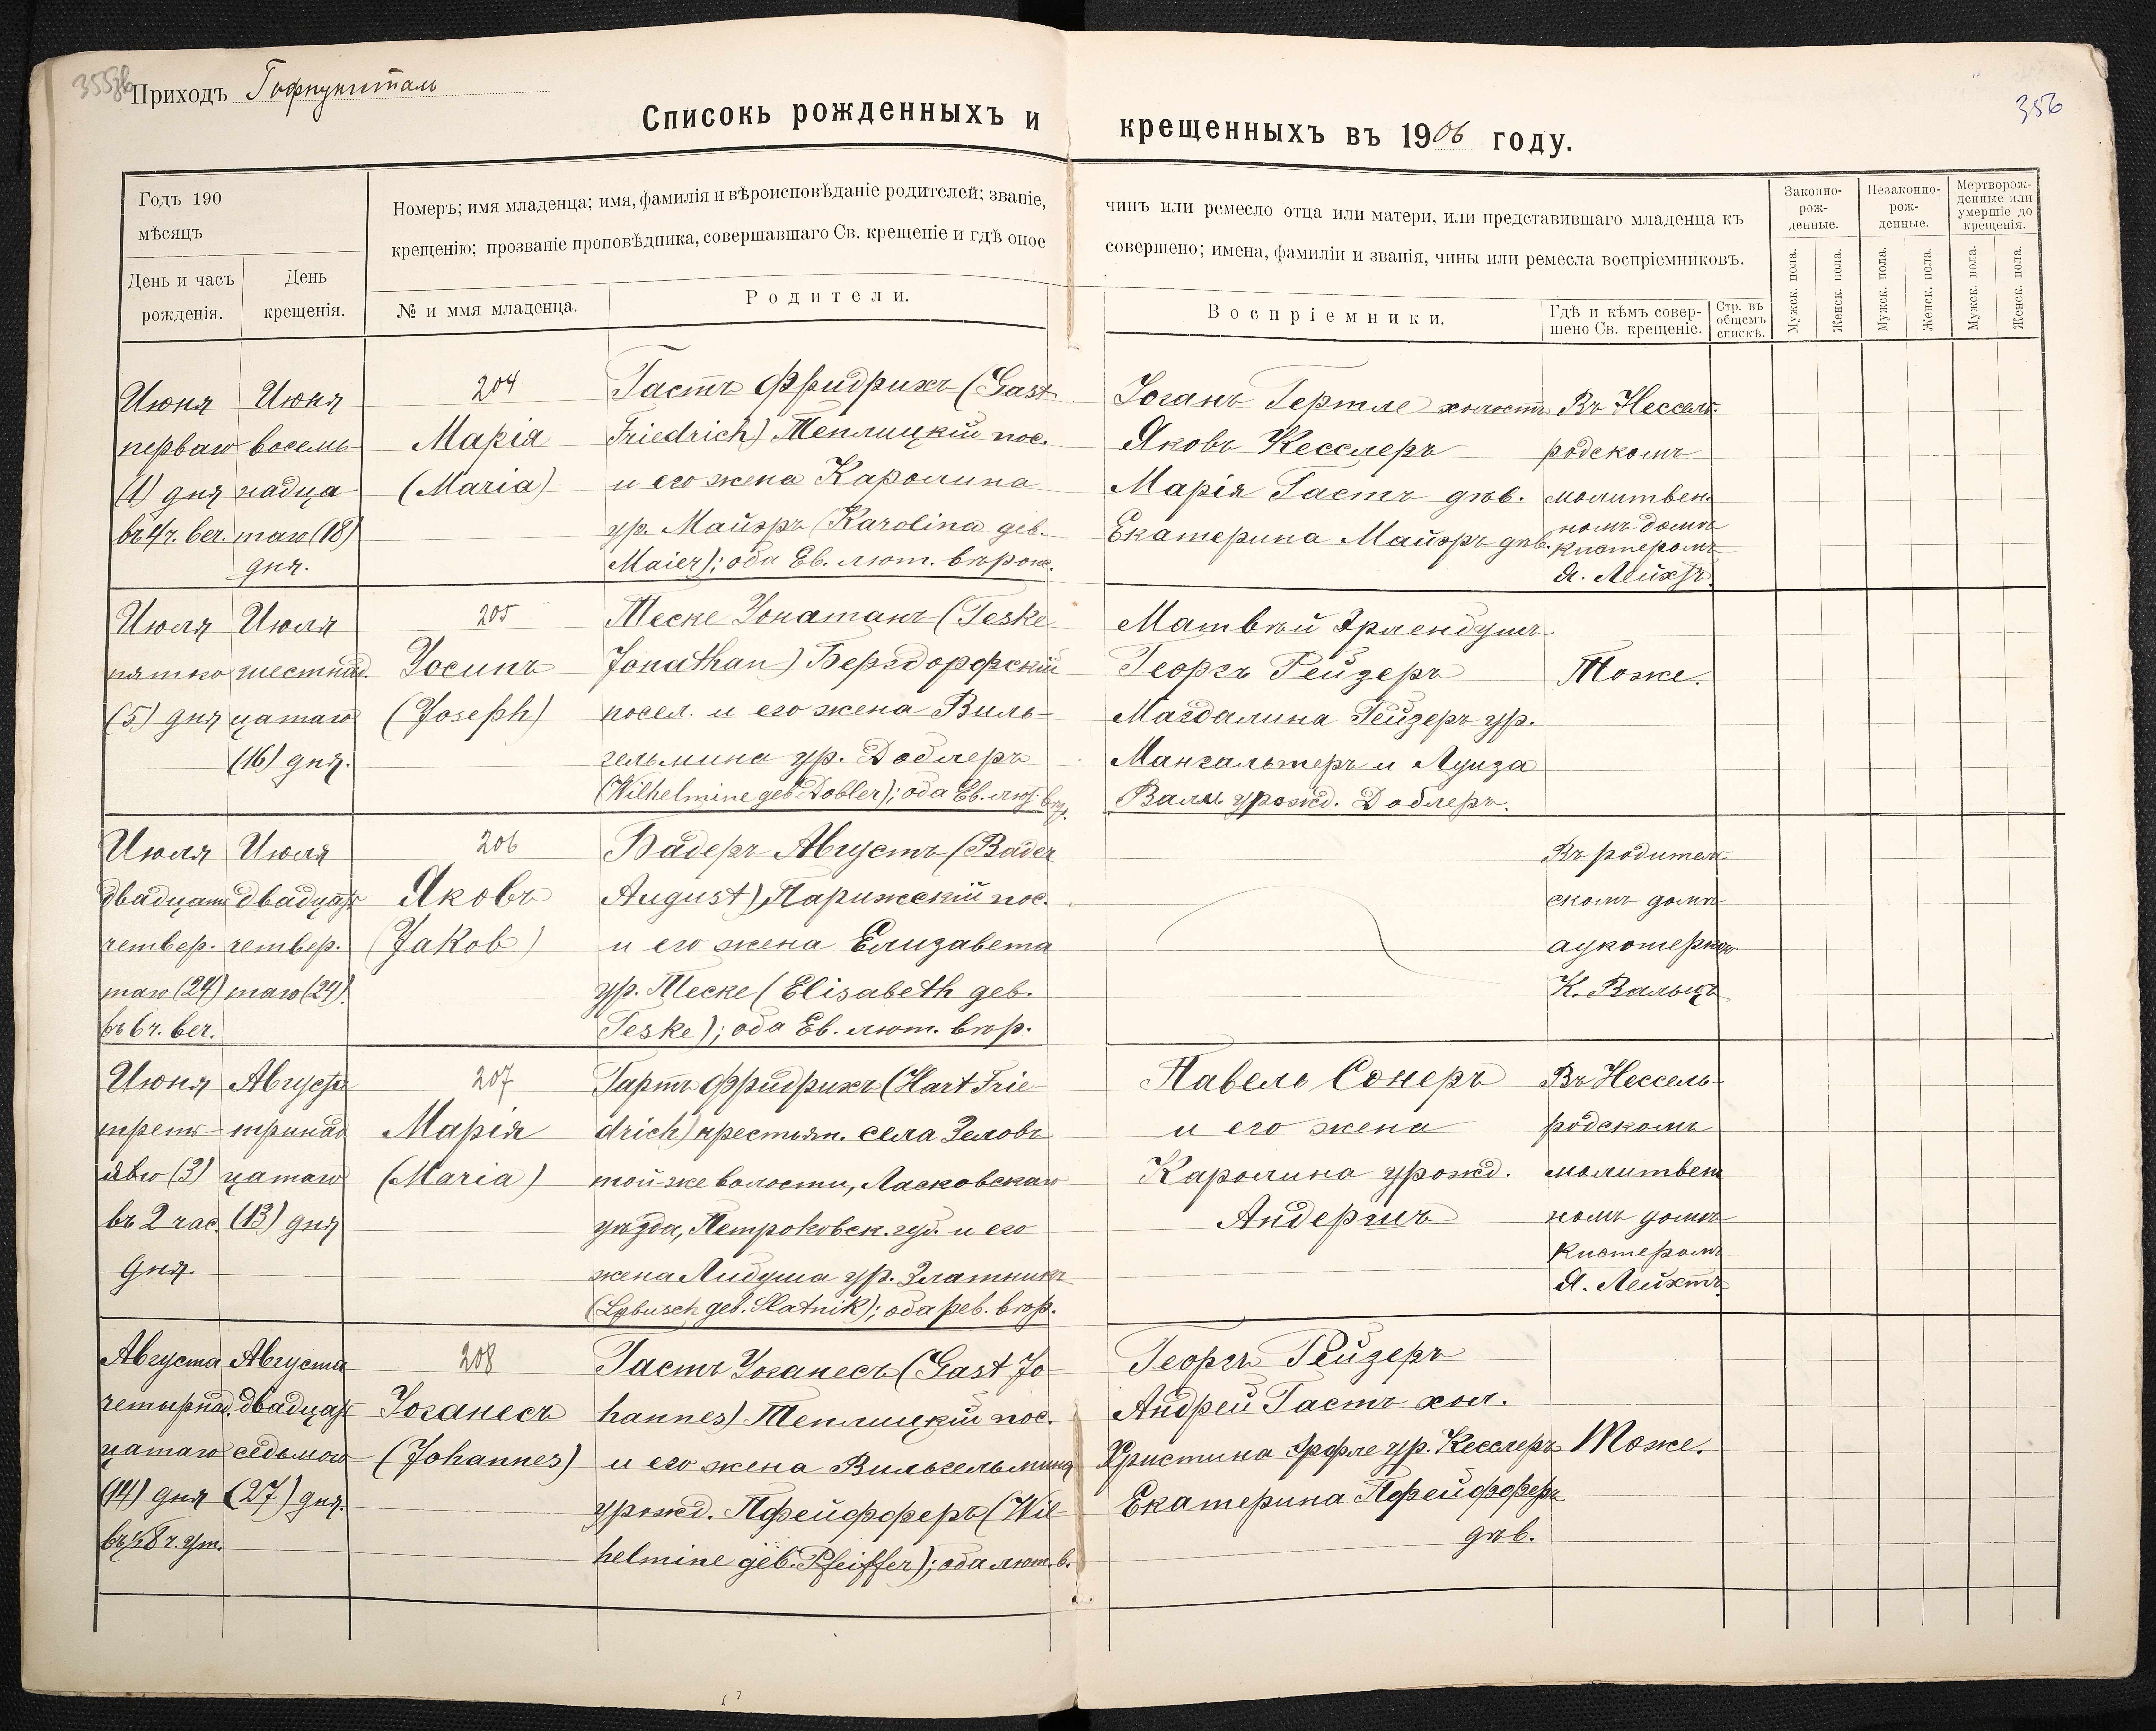 355об
Приходъ Гофнунгсталь
356
Списокъ рожденныхъ и крещенныхъ въ 1906 году.
Годъ 190
мѣсяцъ
День и часъ рожденія.
День крещенія.
Номеръ; имя младенца; имя, фамилія и вѣроисповѣданіе родителей; званіе, чинъ или ремесло отца или матери, или представившаго младенца къ
крещенію; прозваніе проповѣдника, совершавшаго Св. крещеніе и гдѣ оное совершено; имена, фамиліи и званія, чины или ремесла воспріемниковъ.
№ и ммя младенца.
Родители.
Воспріемники.
Гдѣ и кѣмъ совер-
шено Св. крещеніе.
Стр. въ
общемъ
спискѣ.
Законно-
рож-
денные.
Незаконно-
рож-
денные.
Мертворож-
денные или
умершіе до
крещенія.
Мужск. пола.
Женск. пола.
Мужск. пола.
Женск. пола.
Мужск. пола.
Женск. пола.
Июня
перваго
(1) дня
въ 4 ч. веч.
Июня
восемь-
надца-
таго (18)
дня.
204
Марія
(Maria)
Гастъ Фридрихъ (Gast
Friedrich) Теплицкій пос.
и его жена Каролина
ур. Майэръ (Karolina geb.
Maier); оба Ев. лют. вѣроис.
Іоганъ Гертле холостъ
Яковъ Кесслеръ
Марія Гастъ дѣв.
Екатерина Майэръ дѣв.
Въ Нессель-
родскомъ
молитвен-
номъ домѣ
кистеромъ
Я. Лейхтъ.
Июля
пятаго
(5) дня
Июля
шестнад.
цатаго
(16) дня.
205
Іосипъ
(Joseph)
Теске Іонатанъ (Teske
Jonathan) Бергдорфскій
посел. и его жена Виль-
гельмина ур. Доблеръ
(Wilhelmine geb. Dobler); оба Ев. лют. вѣр.
Матвѣй Эрлендушъ
Георгъ Рейзеръ
Магдалина Рейзеръ ур.
Мангальтеръ и Луиза
Валь урожд. Доблеръ.
Тоже.
Июля
двадцать
четвер.
таго (24)
въ 6 ч. веч.
Июля
двадцать
четвер.
таго (24).
206
Яковъ
(Jakob)
Бадеръ Августъ (Bader
August), Парижскій пос.
и его жена Елизавета
ур. Теске (Elisabeth geb.
Teske); оба Ев. лют. вѣр.
Въ родитель-
скомъ домѣ
акушеркою
К. Вальцъ
Июня
треть-
яго (3)
въ 2 час.
дня.
Августа
тринад
цатаго
(13) дня
207
Марія
(Maria)
Гартъ Фридрихъ (Hart Frie-
drich) крестьян. села Зеловъ
той же волости, Ласковскаго
уѣзда, Петроковск. губ. и его
жена Либуша ур. Златникъ
(Lybusch geb. Slatnik); оба реф. вѣр.
Павелъ Сонеръ
и его жена
Каролина урожд.
Андершъ
Въ Нессель-
родскомъ
молитвен
номъ домѣ
Кистеромъ
Я. Лейхтъ.
Августа
четырнад.
цатаго
(14) дня
въ ½ 8 ч. ут.
Августа
двадцать
седьмого
(27) дня.
208
Іоганесъ
(Johannes)
Гастъ Іоганесъ (Gast Jo-
hannes) Теплицкій пос.
и его жена Вильгельмина
урожд. Пфейфферъ (Wil-
helmine geb. Pfeiffer); оба лют. в.
Георгъ Рейзеръ
Андрей Гастъ хол.
Христина Эрфле ур. Кесслеръ
Екатерина Пфейфферъ
дѣв.
Тоже.